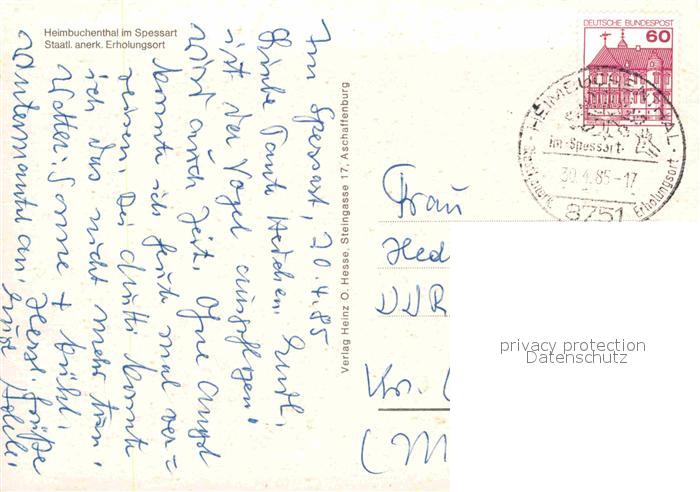 Heimbuchenthal im Spessart
Staatl. anerk. Erholungsort
Im Spessart, 20.4.85
Liebe Tante Hedchen. Endl.
ist der Vogel ausgeflogen!
wird auch Zeit. Ohne Angst
konnte ich heute mal ver=
reisen. Bei Mutti konnte
ich das nicht mehr tun.
Wetter: Sonne + kühl.
Wintermantel an. Herzl. Grüße
Eure
Verlag Heinz O. Hesse, Steingasse 17, Aschaffenburg
DEUTSCHE BUNDESPOST
60
HEIMBUCHENTHAL
im Spessart
30.4.85-17
Erholungsort
8751
Frau
Hed
DDR
Kr.
(M
privacy protection
Datenschutz